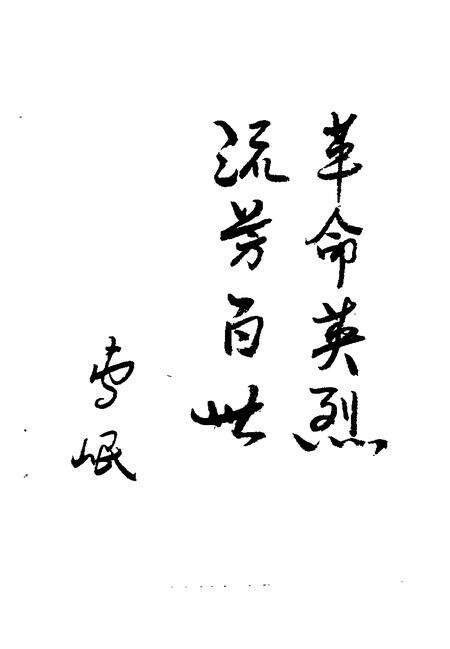 革命英烈
流芳百世
岷